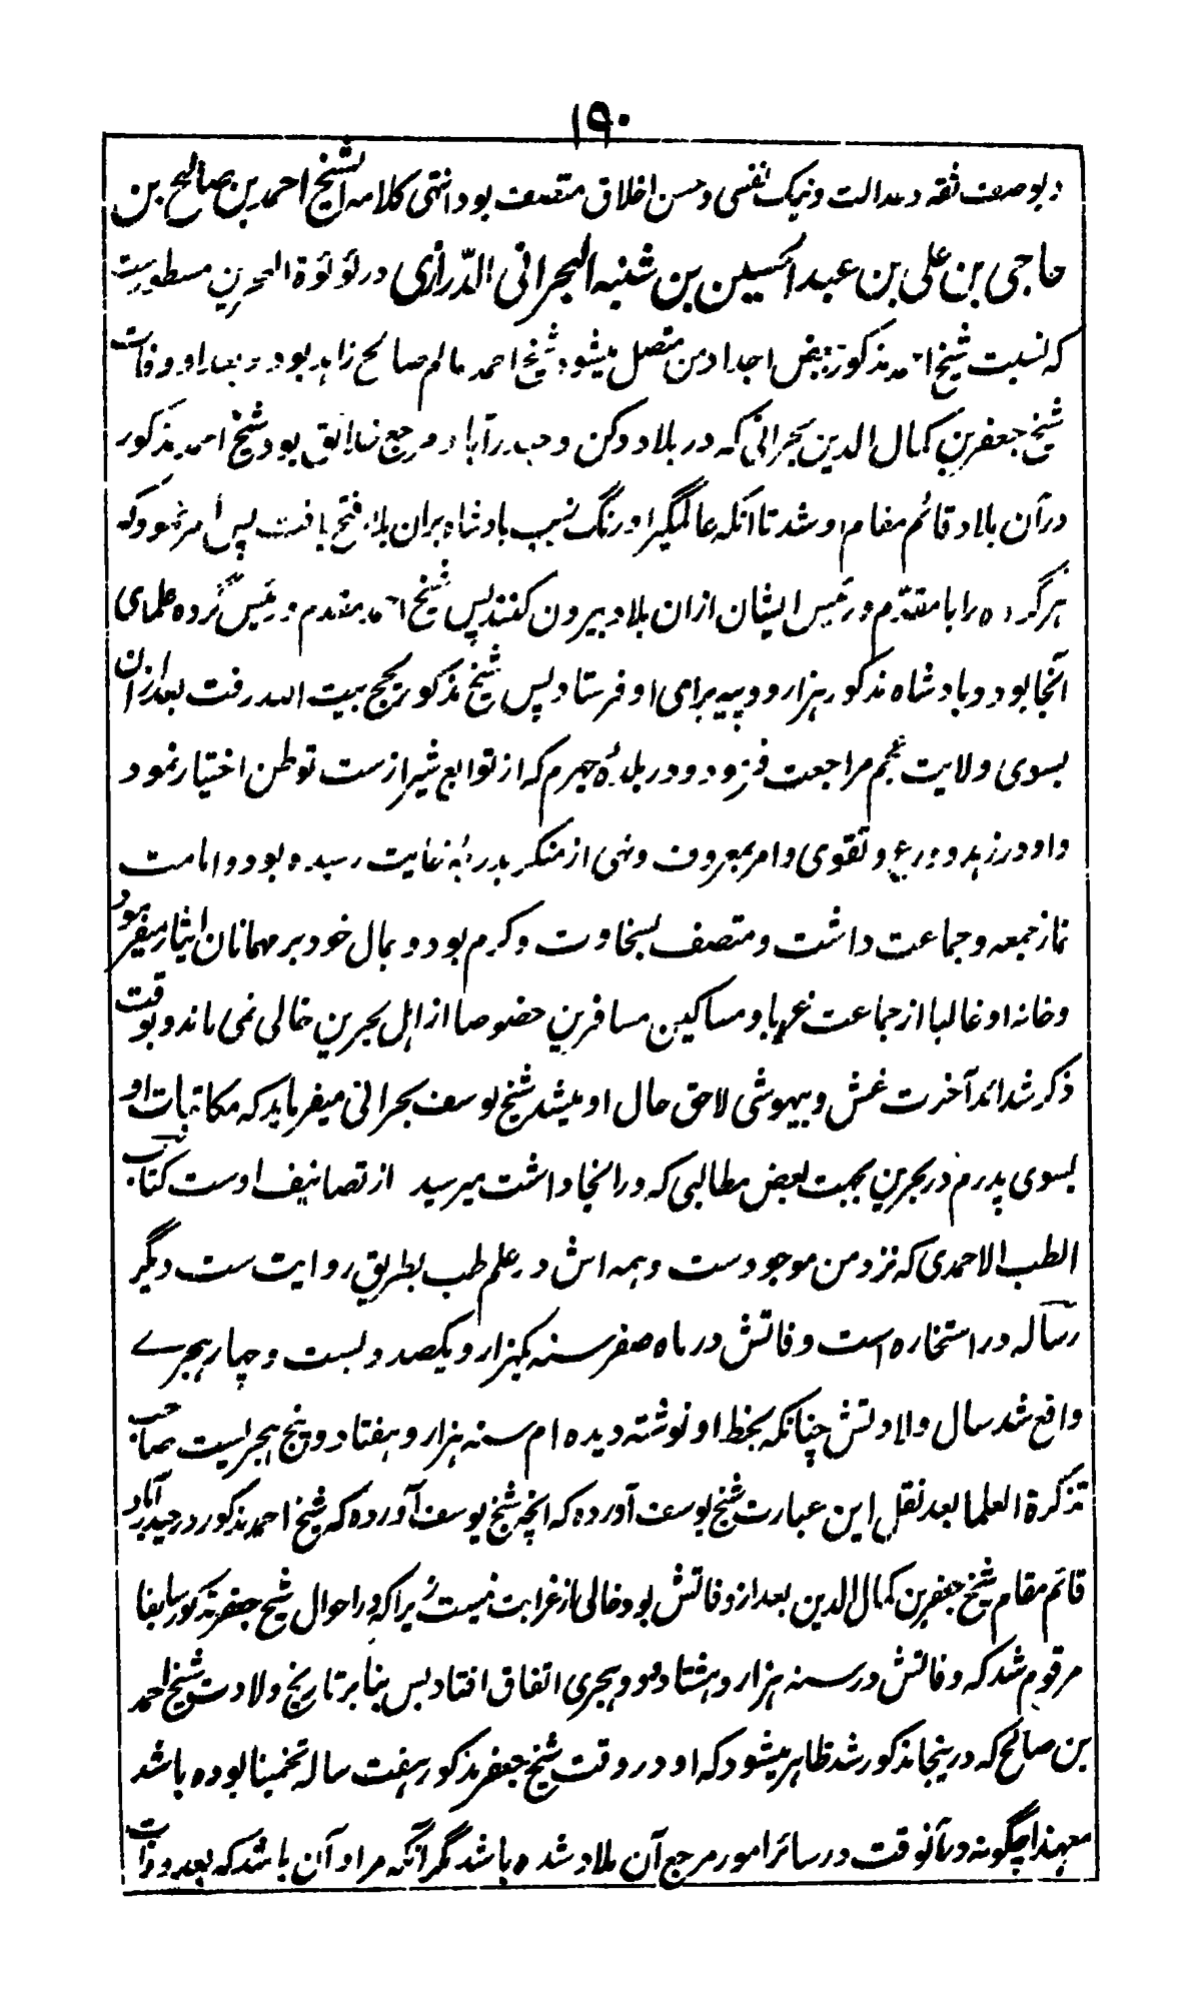 ۱۹۰
و بوصف ثقه و عدالت و نیک نفسی و حسن اخلاق متصف بود انتهی کلامه الشیخ احمد بن صالح بن
حاجی بن علی بن عبد الحسین بن شنبه البحرانی الدّرازی در لؤلؤة البحرین مسطورست
که نسبت شیخ احمد مذکور ببعض اجداد من متصل میشود شیخ احمد عالم صالح زاهد بود و بعد او وفات
شیخ جعفر بن کمال الدین بحرانی که در بلاد دکن و حیدرآباد مرجع خلایق بود شیخ احمد مذکور
در آن بلاد قائم مقام او شد تا آنکه عالمگیر اورنگ زیب بادشاه بران بلاد فتح یافت پس امر نمود که
هر گروه را با مقدّم و رئیس ایشان ازان بلاد بیرون کنند پس شیخ احمد مقدم و رئیس گروه علمای
آنجا بود و بادشاه مذکور هزار روپیه برای او فرستاد پس شیخ مذکور بحج بیت الله رفت بعد ازان
بسوی ولایت عجم مراجعت فرمود و در بلدۀ جهرم که از توابع شیراز ست توطن اختیار نمود
و او در زهد و ورع و تقوی و امر بمعروف و نهی از منکر بدرجۀ غایت رسیده بود و امامت
نماز جمعه و جماعت داشت و متصف بسخاوت و کرم بود و بمال خود بر مهمانان ایثار میفرمود
و خانه او غالبا از جماعت غربا و مساکین مسافرین خصوصا از اهل بحرین خالی نمی ماند و بوقت
ذکر شدائد آخرت غش و بیهوشی لاحق حال او میشد شیخ یوسف بحرانی میفرماید که مکاتبات او
بسوی پدرم در بحرین بجهت بعض مطالبی که در انجا داشت میرسید از تصانیف اوست کتاب
الطب الاحمدی که نزد من موجودست و همه اش در علم طب بطریق روایت ست دیگر
رساله در استخاره است و فاتش در ماه صفر سنه یکهزار و یکصد و بست و چهار هجرے
واقع شد سال ولادتش چنانکه بخط او نوشته دیده ام سنه هزار و هفتاد و پنج هجریست صاحب
تذکرة العلما بعد نقل این عبارت شیخ یوسف آورده که انچه شیخ یوسف آورده که شیخ احمد مذکور در حیدرآباد
قائم مقام شیخ جعفر بن کمال الدین بعد از وفاتش بود خالی از غرابت نیست زیرا که در احوال شیخ جعفر مذکور سابقا
مرقوم شد که وفاتش در سنه هزار و هشتاد و دو هجری اتفاق افتاد پس بنابر تاریخ ولادت شیخ احمد
بن صالح که درینجا مذکور شد ظاهر میشود که او در وقت شیخ جعفر مذکور هفت ساله تخمینا بوده باشد
معهذا چگونه در آنوقت در سائر امور مرجع آن بلاد شده باشد مگر آنکه مراد آن باشد که بعد وفات